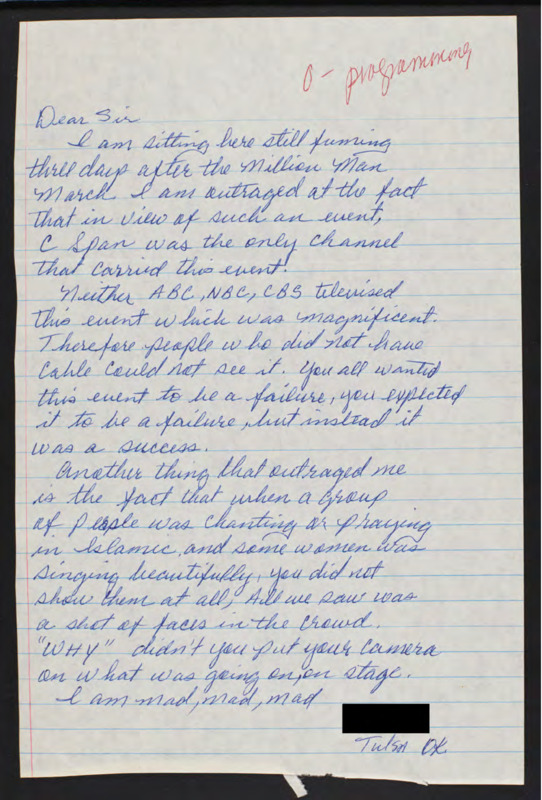 O - programming
Dear Sir
I am sitting here still fuming
three days after the Million Man
March I am outraged at the fact
that in view of such an event,
C Span was the only channel
that carried this event.
Neither ABC, NBC, CBS televised
this event which was magnificent.
Therefore people who did not have
Cable could not see it. You all wanted
this event to be a failure, you expected
it to be a failure, but instead it
was a success.
Another thing that outraged me
is the fact that when a group
of people was chanting or praying
in Islamic, and some women was
singing beautifully, you did not
show them at all, All we saw was
a shot of faces in the crowd.
"WHY" didn't you put your camera
on what was going on, on stage.
I am mad, mad, mad
Tulsa OK